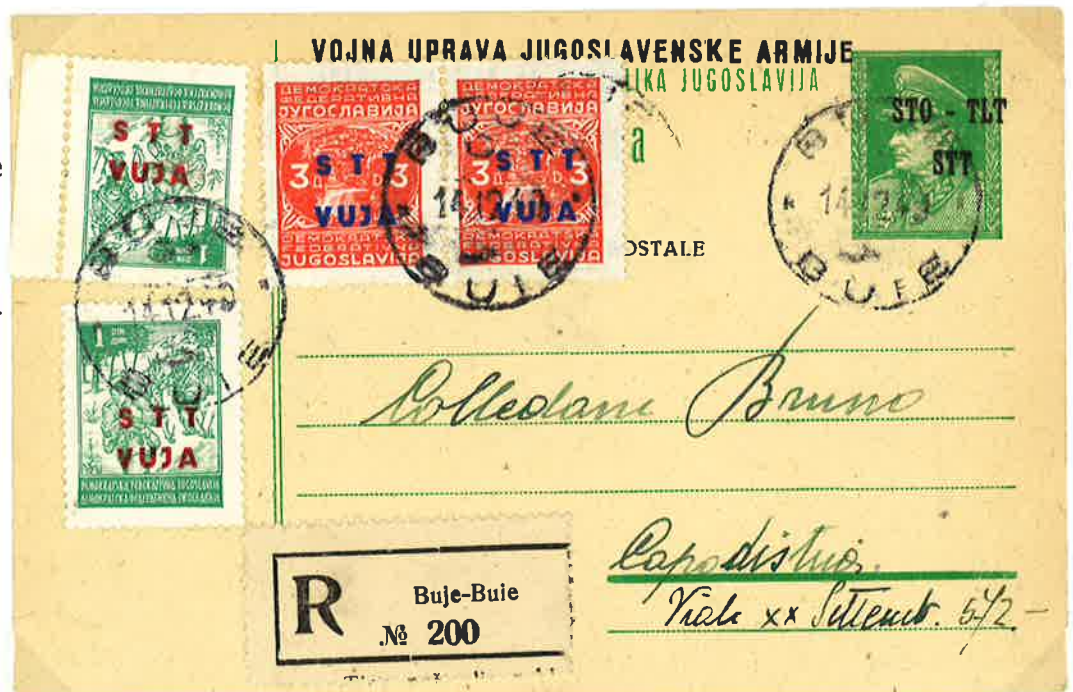 VOJNA UPRAVA JUGOSLAVENSKE ARMIJE
IKA JUGOSLAVIJA
STO - TLT
STT
STT
VUJA
ДЕМОКРАТСКА
ФЕДЕРАТИВНА
ЈУГОСЛАВИЈА
3 STT 3
VUJA
DEMOKRATSKA
FEDERATIVNA
JUGOSLAVIJA
ДЕМОКРАТСКА
ФЕДЕРАТИВНА
ЈУГОСЛАВИЈА
3 STT 3
VUJA
DEMOKRATSKA
FEDERATIVNA
JUGOSLAVIJA
BUJE
14.12.49
BUIE
BUJE
14.12.49
BUIE
OSTALE
BUJE
14.12.49
BUIE
1
STT
VUJA
Colledani Bruno
Capodistria
Viale XX Settemb. 572 -
R
Buje-Buie
№ 200